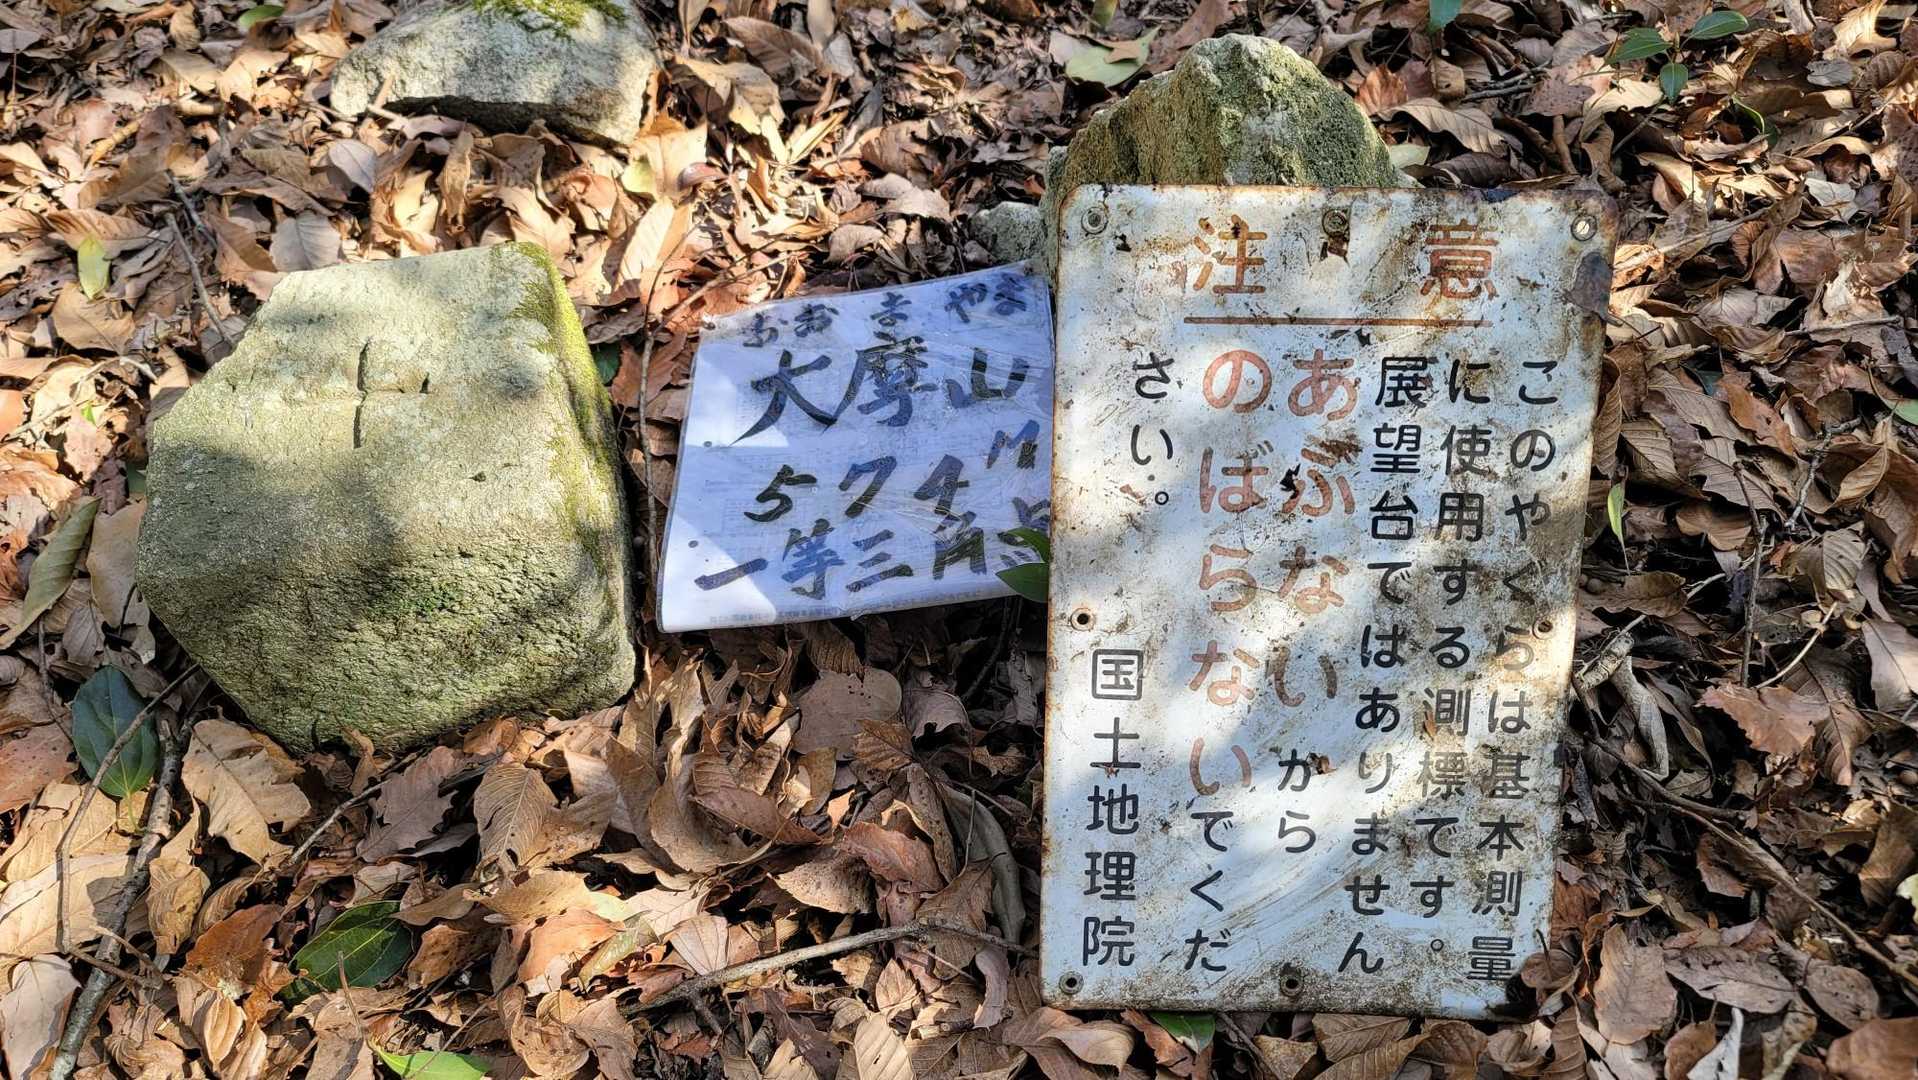 おお ま やま
大摩山
574m
一等三角点
注意
このやくらは基本測量
に使用する測標です。
展望台ではありません
あぶないから
のばらないでくだ
さい。
国土地理院